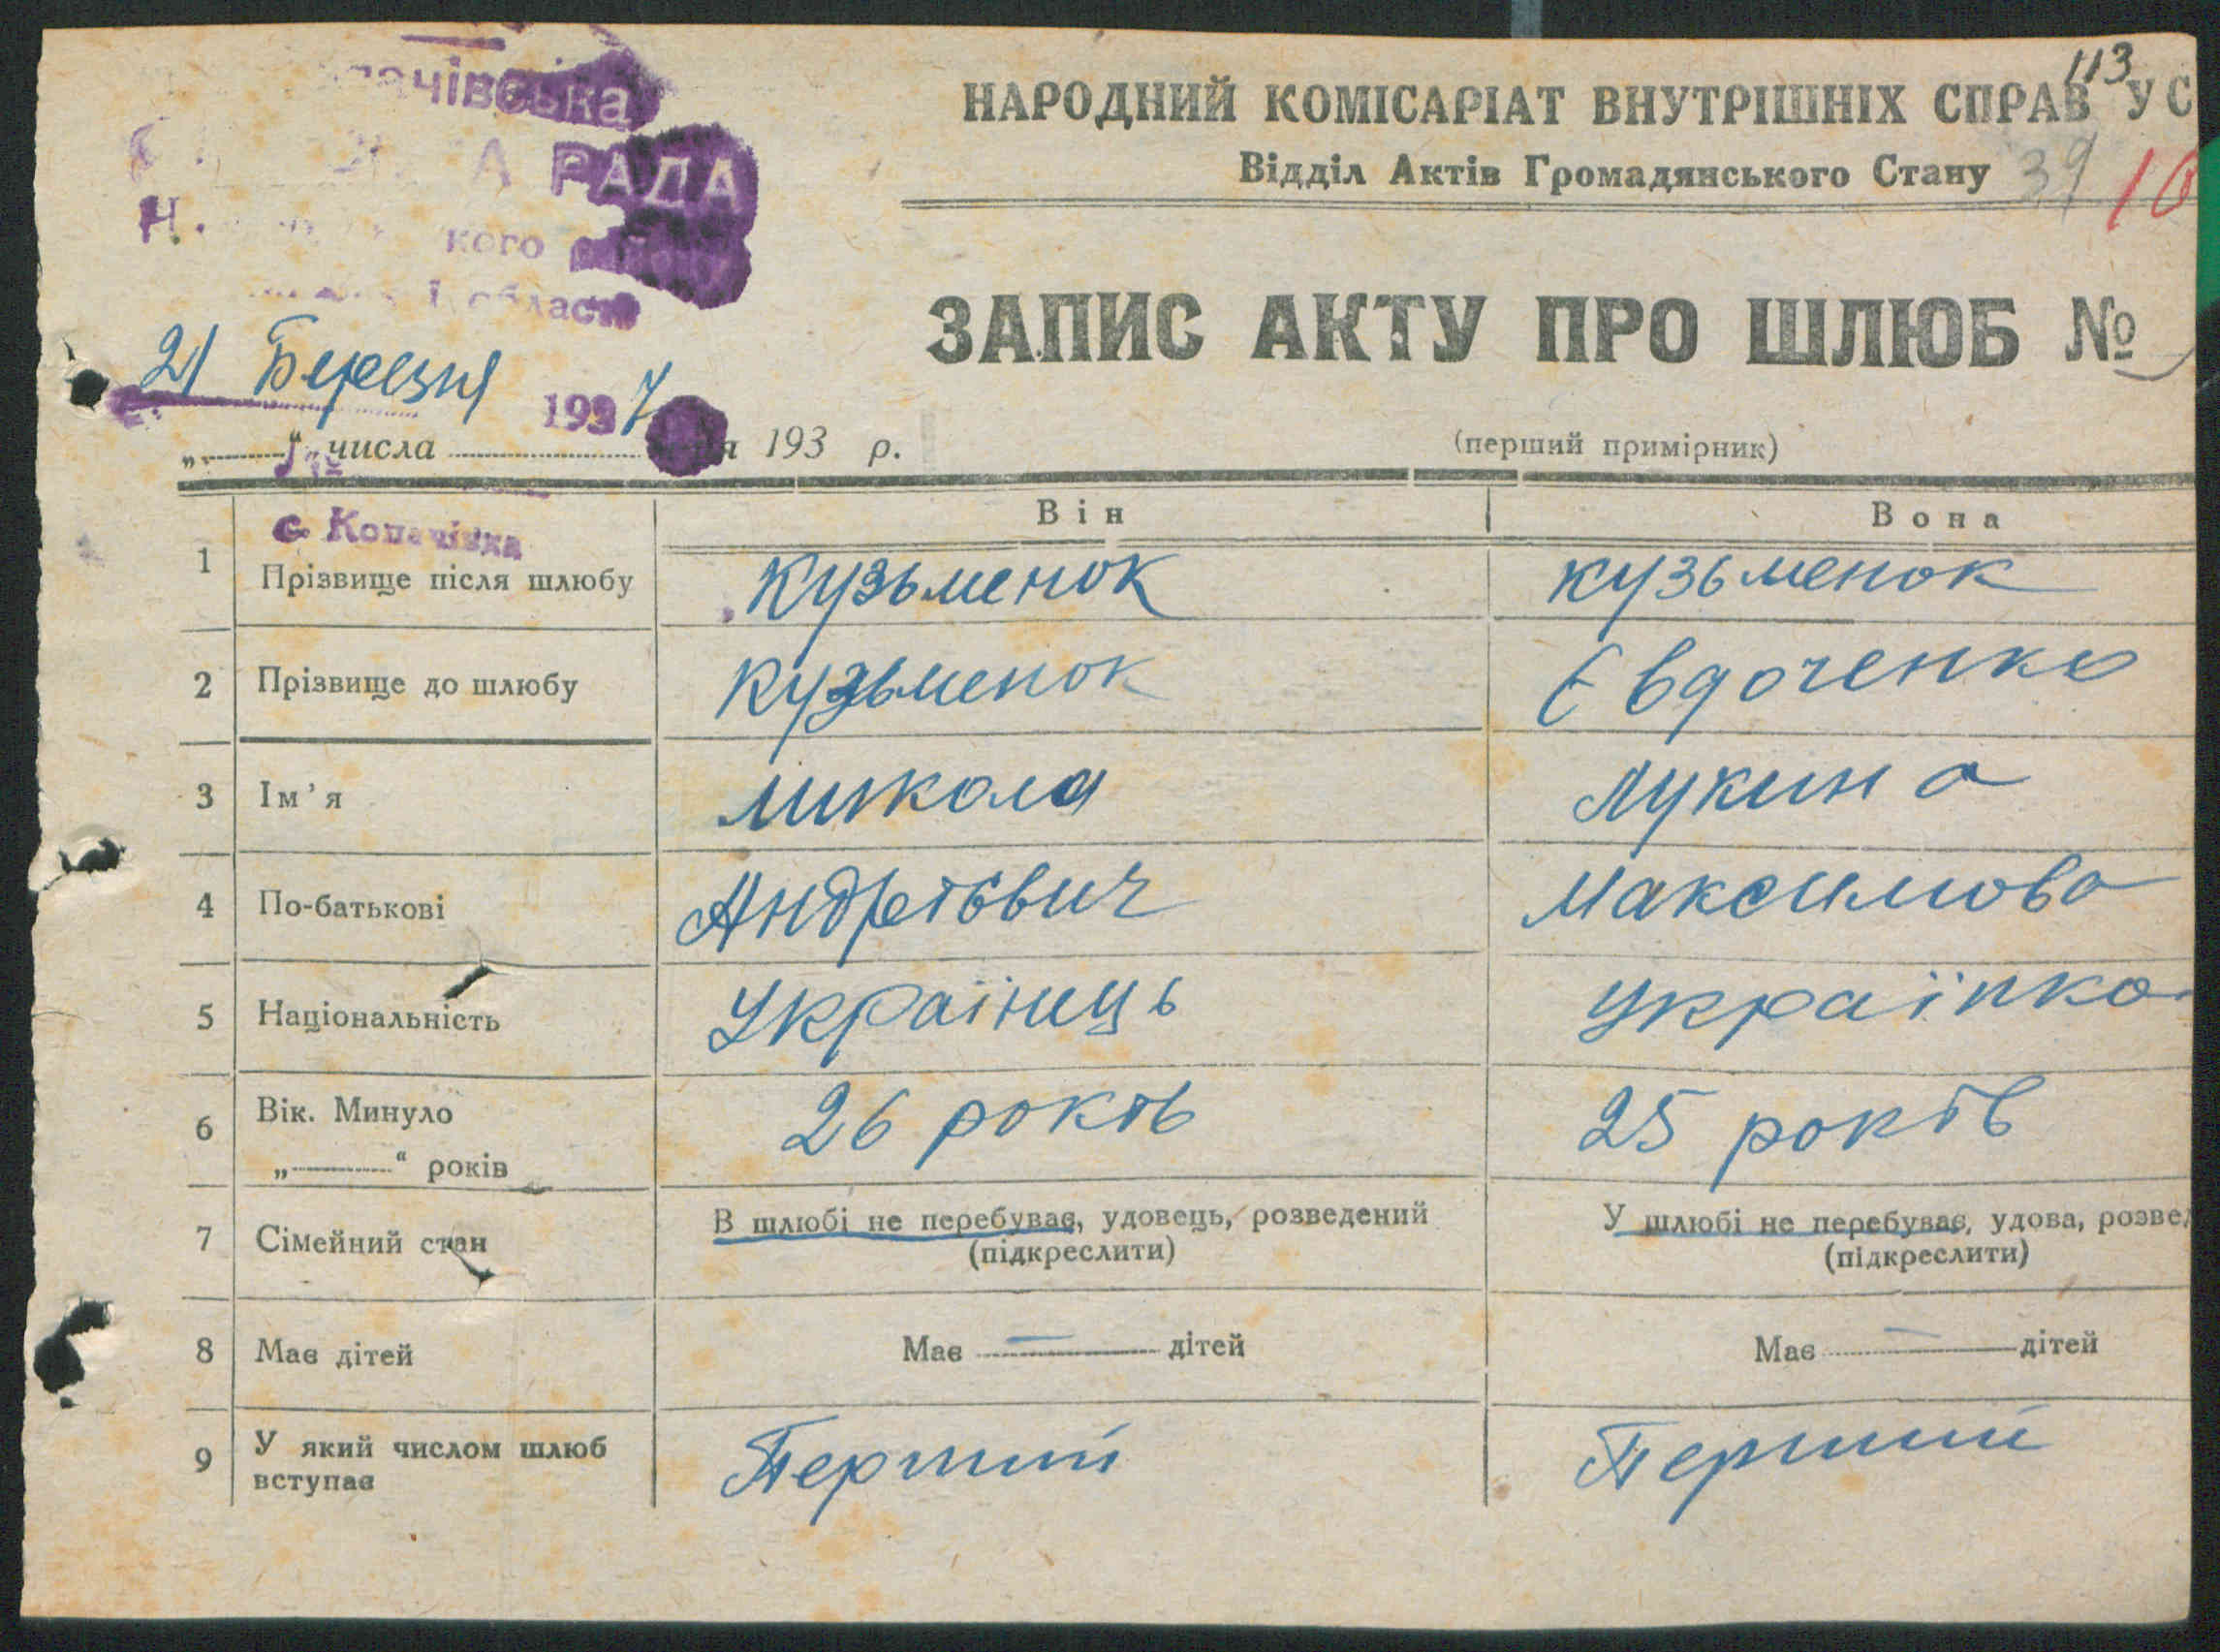 113
НАРОДНИЙ КОМІСАРІАТ ВНУТРІШНІХ СПРАВ УС
Відділ Актів Громадянського Стану 39 10
РАДА
кого району
області
ЗАПИС АКТУ ПРО ШЛЮБ №
21 Березня 1937
„ “ числа 193 р.
(перший примірник)
с. Копачівка
Він Вона
1 Прізвище після шлюбу Кузьменок Кузьменок
2 Прізвище до шлюбу Кузьменок Євдоченко
3 Ім’я Микола Лукина
4 По-батькові Андрієвич Максимова
5 Національність Українець Українка
6 Вік. Минуло 26 років 25 років
„ “ років
7 Сімейний стан В шлюбі не перебуває, удовець, розведений У шлюбі не перебуває, удова, розвед
(підкреслити) (підкреслити)
8 Має дітей Має — дітей Має — дітей
9 У який числом шлюб Перший Перший
вступає